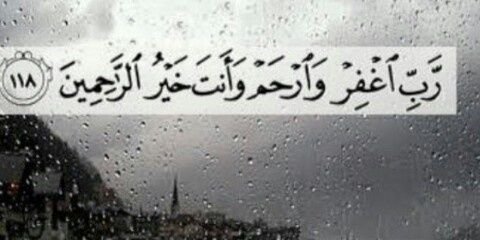 رَّبِّ ٱغۡفِرۡ وَٱرۡحَمۡ وَأَنتَ خَيۡرُ ٱلرَّٰحِمِينَ ١١٨